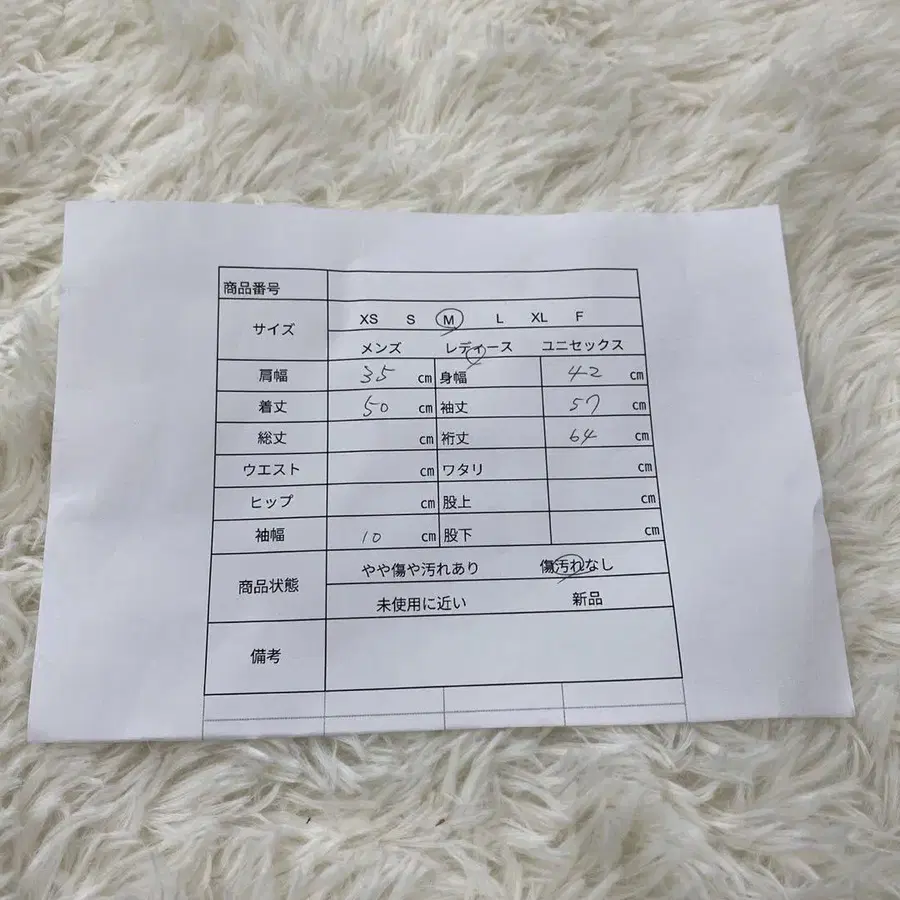 商品番号
サイズ XS S M L XL F
メンズ レディース ユニセックス
肩幅 35 cm 身幅 42 cm
着丈 50 cm 袖丈 57 cm
総丈 cm 裄丈 64 cm
ウエスト cm ワタリ cm
ヒップ cm 股上 cm
袖幅 10 cm 股下 cm
商品状態 やや傷や汚れあり 傷汚れなし
未使用に近い 新品
備考